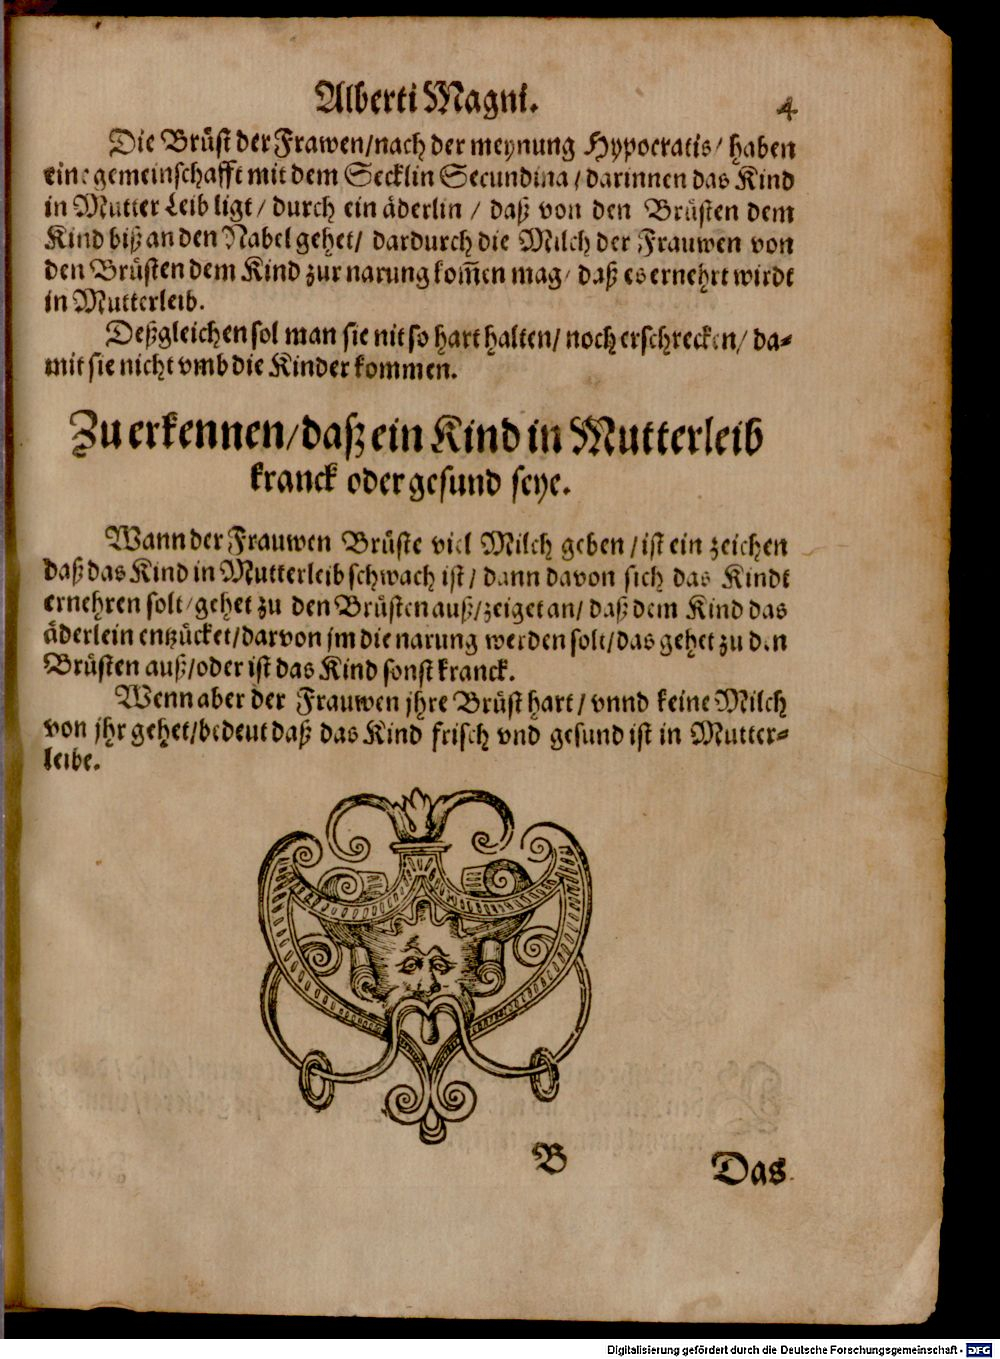 Alberti Magni. 4
Die Brüst der Frawen/nach der meynung Hypocratis/ haben
eine gemeinschafft mit dem Secklin Secundina/darinnen das Kind
in Mutter Leib ligt/ durch ein äderlin / daß von den Brüsten dem
Kind biß an den Nabel gehet/ dardurch die Milch der Frauwen von
den Brüsten dem Kind zur narung kom̃en mag/ daß es ernehrt wirdt
in Mutterleib.
Deßgleichen sol man sie nit so hart halten/ noch erschrecken/ da-
mit sie nicht vmb die Kinder kommen.
Zu erkennen/daß ein Kind in Mutterleib
kranck oder gesund seye.
Wann der Frauwen Brüste viel Milch geben/ist ein zeichen
daß das Kind in Mutterleib schwach ist/ dann davon sich das Kindt
ernehren solt/gehet zu den Brüsten auß/zeiget an/ daß dem Kind das
äderlein entzücket/darvon jm die narung werden solt/das gehet zu den
Brüsten auß/oder ist das Kind sonst kranck.
Wenn aber der Frauwen jhre Brüst hart/ vnnd keine Milch
von jhr gehet/bedeut daß das Kind frisch vnd gesund ist in Mutter-
leibe.
B Das
Digitalisierung gefördert durch die Deutsche Forschungsgemeinschaft - DFG